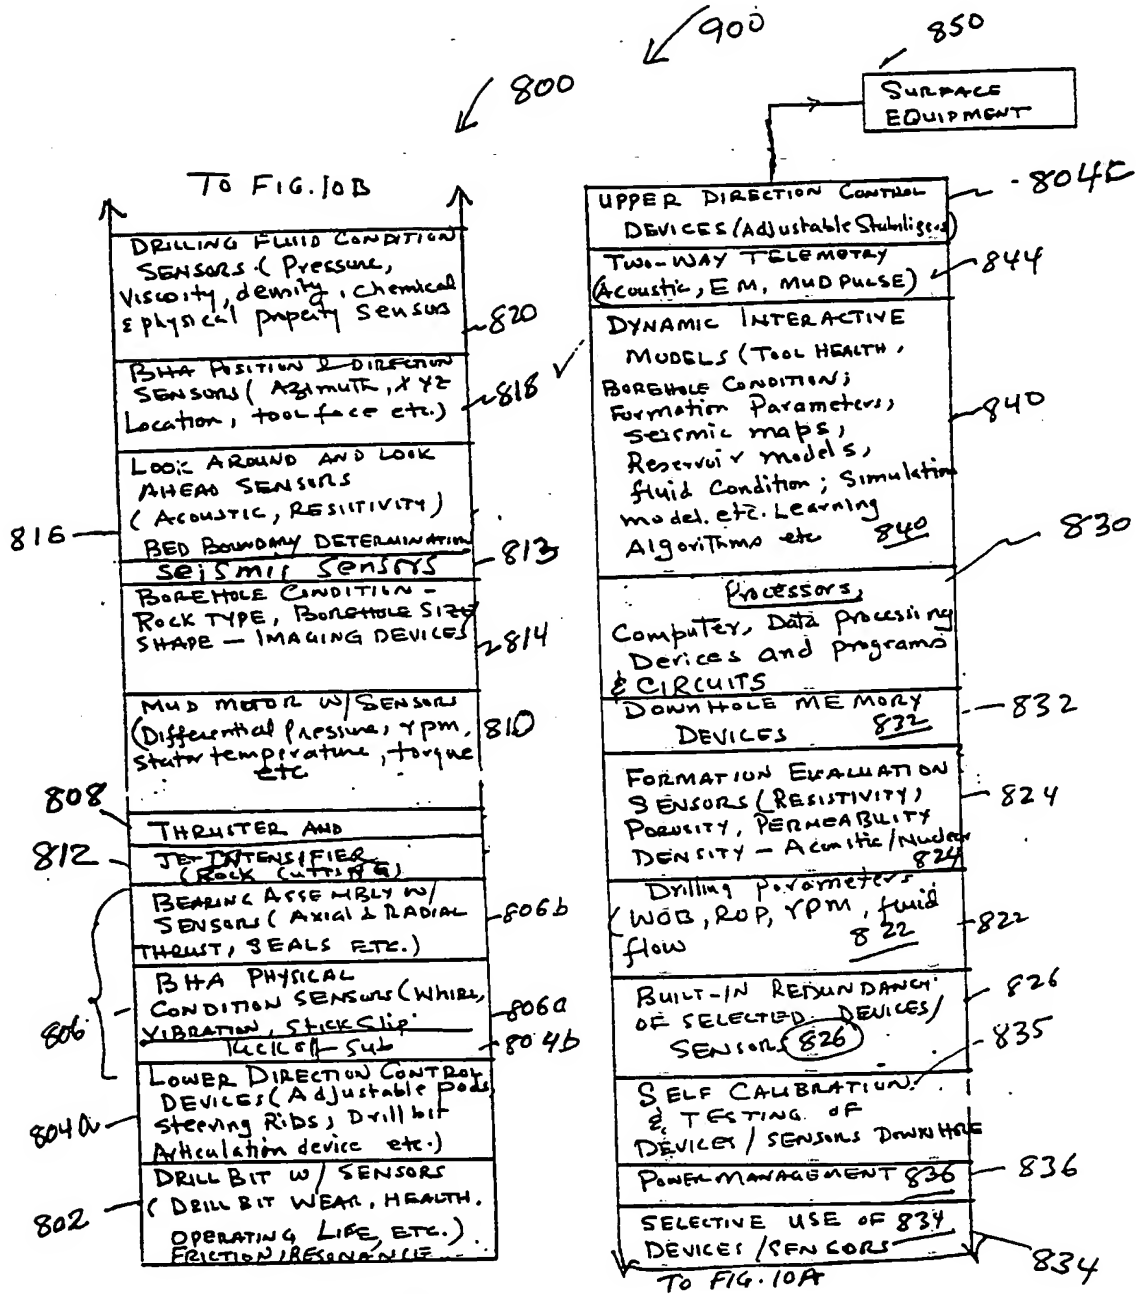 900
850
SURFACE
EQUIPMENT
800
TO FIG. 10B
DRILLING FLUID CONDITION
SENSORS (Pressure,
Viscosity, density, chemical
& physical property sensors
820
BHA POSITION & DIRECTION
SENSORS (Azimuth, XYZ
Location, tool face etc.)
818
LOOK AROUND AND LOOK
AHEAD SENSORS
(ACOUSTIC, RESISTIVITY)
BED BOUNDARY DETERMINATION
816
SEISMIC SENSORS
813
BOREHOLE CONDITION -
ROCK TYPE, BOREHOLE SIZE
SHAPE - IMAGING DEVICES
814
MUD MOTOR W/ SENSORS
(Differential Pressure, rpm,
stator temperature, torque
etc
810
808
THRUSTER AND
812
JET INTENSIFIER
(ROCK CUTTING)
BEARING ASSEMBLY W/
SENSORS (AXIAL & RADIAL
THRUST, SEALS ETC.)
806b
806
BHA PHYSICAL
CONDITION SENSORS (WHIRL,
VIBRATION, STICK SLIP
806a
Kick off Sub
804b
LOWER DIRECTION CONTROL
DEVICES (Adjustable pads,
steering Ribs, Drill bit
Articulation device etc.)
804a
DRILL BIT W/ SENSORS
(DRILL BIT WEAR, HEALTH.
OPERATING LIFE, ETC.)
FRICTION, RESONANCE
802
UPPER DIRECTION CONTROL
DEVICES (Adjustable Stabilizers)
804c
TWO-WAY TELEMETRY
(Acoustic, EM, MUD PULSE)
844
DYNAMIC INTERACTIVE
MODELS (TOOL HEALTH,
BOREHOLE CONDITION;
Formation Parameters,
Seismic maps,
Reservoir models,
fluid Condition; Simulation
model. etc. Learning
Algorithms etc 840
840
830
Processors,
Computer, Data processing
Devices and programs
& CIRCUITS
DOWNHOLE MEMORY
DEVICES 832
832
FORMATION EVALUATION
SENSORS (RESISTIVITY,
POROSITY, PERMEABILITY
DENSITY - Acoustic/Nuclear
824
824
Drilling parameters
(WOB, ROP, rpm, fluid
flow 822
822
BUILT-IN REDUNDANCY
OF SELECTED DEVICES/
SENSORS 826
826
835
SELF CALIBRATION
& TESTING OF
DEVICES / SENSORS DOWNHOLE
POWER MANAGEMENT 836
836
SELECTIVE USE OF 834
DEVICES / SENSORS
834
TO FIG. 10A